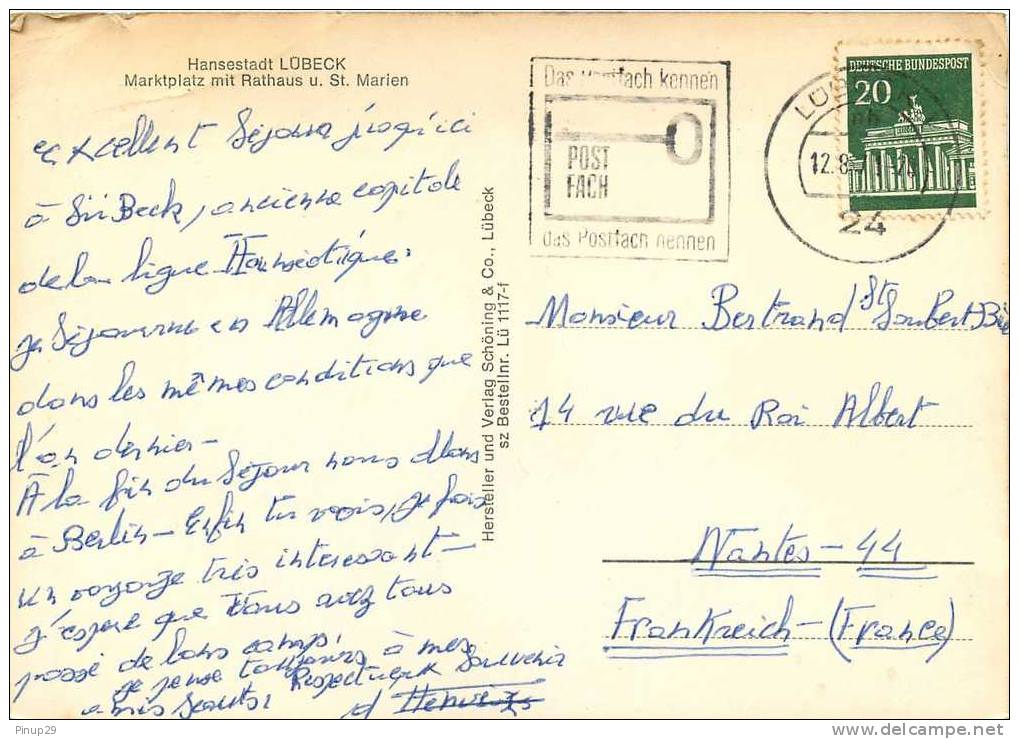 Hansestadt LÜBECK
Marktplatz mit Rathaus u. St. Marien
excellent séjour jusqu'ici
à Beck, ancienne capitale
de la ligue Hanséatique.
je séjourne en Allemagne
dans les mêmes conditions que
l'an dernier -
À la fin du séjour nous allons
à Berlin - Enfin tu vois, je fais
un voyage très intéressant -
J'espère que vous avez tous
passé de bons camps.
je pense toujours à mes
amis scouts. Respectueux Souvenir
Hersteller und Verlag Schöning & Co., Lübeck
sz Bestellnr. Lü 1117-f
Das Postfach kennen
POST
FACH
das Postfach nennen
DEUTSCHE BUNDESPOST
20
24
Monsieur Bertrand St
14 rue du Roi Albert
Nantes - 44
Frankreich - (France)
Pinup29
delcampe.net